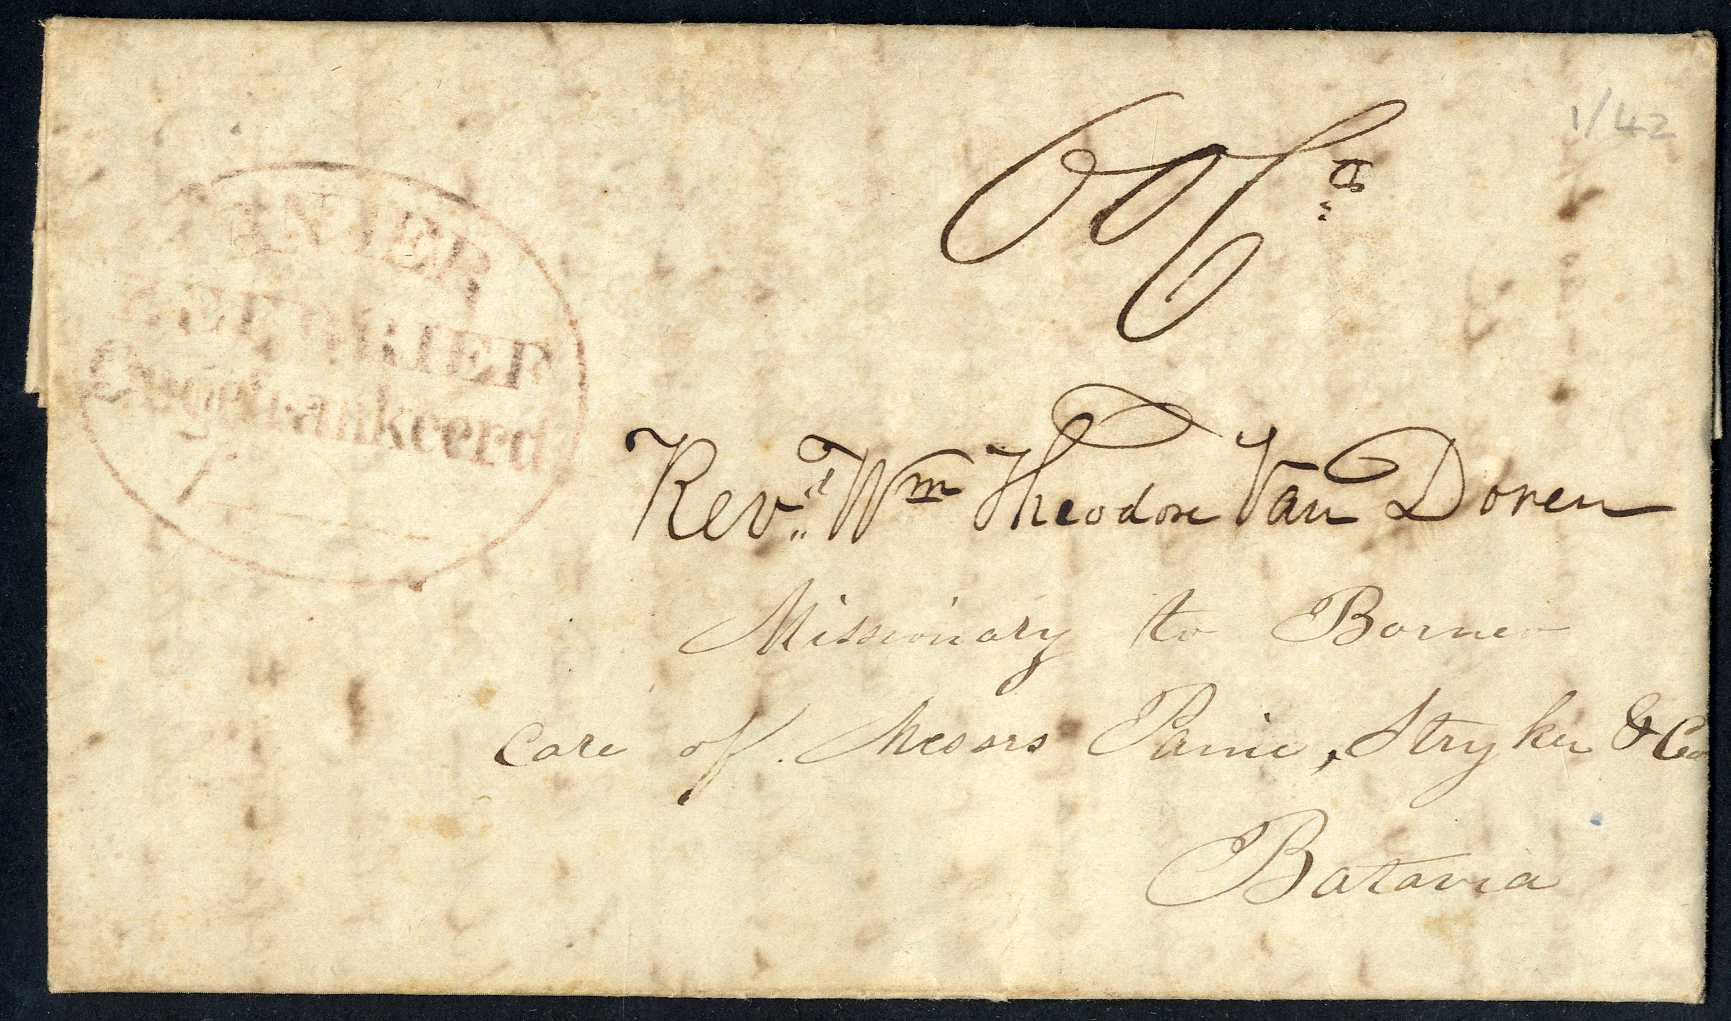 1/42
60 Cts
ANJER
ZEEBRIEF
Ongefrankeerd
Revd. Wm Theodore Van Doren
Missionary to Borneo
care of Messrs Paine, Stryker & Co
Batavia